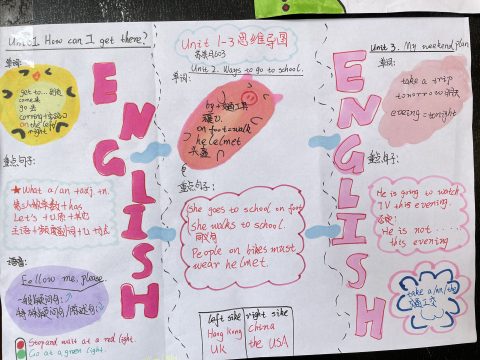 Unit 1 How can I get there?
单词:
get to... 到达
come 来
go 去
on the left
right
重点句子:
★What a/an +adj. +n.
语音:
Follow me, please
Stop and wait at a red light.
Go at a green light.
ENGLISH
Unit 1-3思维导图
Unit 2. Ways to go to school.
单词:
by+交通工具
on foot=walk
helmet
头盔
重点句子:
She goes to school on foot
She walks to school.
同义句
People on bikes must
wear helmet.
left side right side
Hong Kong China
UK the USA
ENGLISH
Unit 3. My weekend plan
单词:
take a trip
tomorrow 明天
evening=tonight
重点句子:
He is going to watch
TV this evening.
He is not.....
this evening
take a/an/the